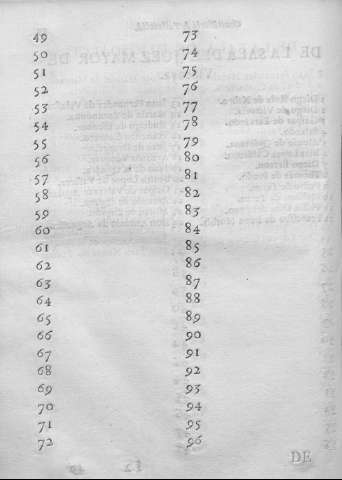 49
50
51
52
53
54
55
56
57
58
59
60
61
62
63
64
65
66
67
68
69
70
71
72
73
74
75
76
77
78
79
80
81
82
83
84
85
86
87
88
89
90
91
92
93
94
95
96
DE